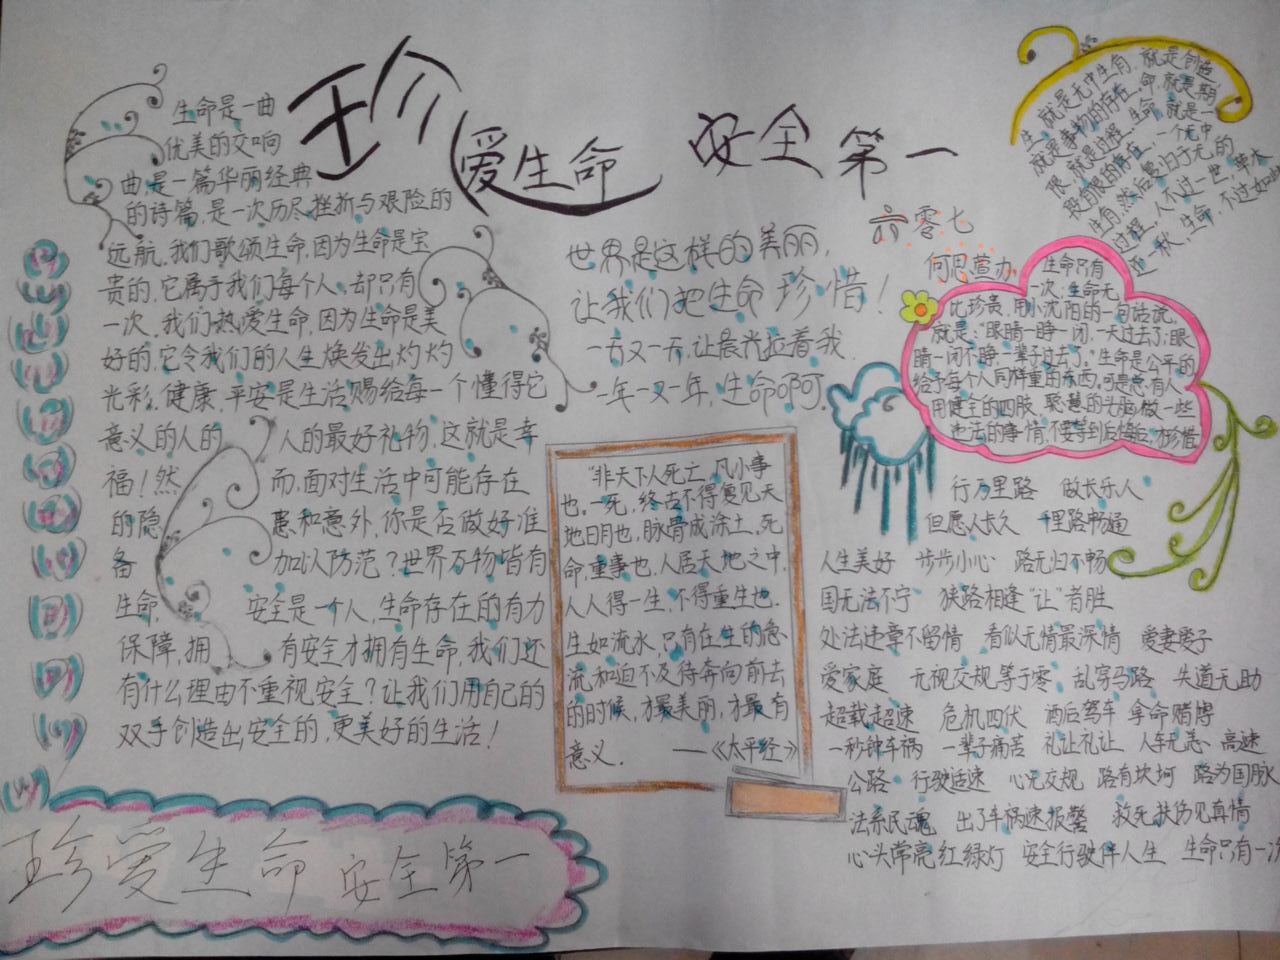 珍爱生命 安全第一
六零七
何思萱办
生命是一曲
优美的交响
曲,是一篇华丽经典
的诗篇,是一次历尽挫折与艰险的
远航,我们歌颂生命,因为生命是宝
贵的,它属于我们每个人,却只有
一次,我们热爱生命,因为生命是美
好的,它令我们的人生焕发出灼灼
光彩,健康,平安是生活赐给每一个懂得它
意义的人的人的最好礼物,这就是幸
福!然而,面对生活中可能存在
的隐患和意外,你是否做好准
备加以防范?世界万物皆有
生命,安全是一个人,生命存在的有力
保障,拥有安全才拥有生命,我们还
有什么理由不重视安全?让我们用自己的
双手创造出安全的,更美好的生活!
世界是这样的美丽,
让我们把生命珍惜!
一天又一天,让晨光拉着我
一年一又一年,生命啊呵,
"非天下人死亡,凡小事
也,一死,终古不得复见天
地日月也,脉骨成涂土,死
命,重事也,人居天地之中,
人人得一生,不得重生也.
生如流水,只有在生的急
流和迫不及待奔向前去
的时候,才最美丽,才最有
意义. ——《太平经》
生,就是无中生有,就是创造
就是事物的存在,命,就是期
限,就是过程,生命,就是一
段有限的存在,一个无中
生有然后复归于无的
过程,人不过一世,草木
不过一秋,生命,不过如此
生命只有
一次,生命无
比珍贵,用小沈阳的一句话说,
就是:"眼睛一睁一闭,一天过去了;眼
睛一闭不睁一辈子过去了."生命是公平的
给予每个人同样重的东西,可是总有人
用健全的四肢,聪慧的头脑做一些
违法的事情,不要等到后悔后,才珍惜
行万里路 做长乐人
但愿人长久 千里路畅通
人生美好 步步小心 路无归不畅
国无法不宁 狭路相逢"让"者胜
处法违章不留情 看似无情最深情 爱妻爱子
爱家庭 无视交规等于零 乱穿马路 失道无助
超载超速 危机四伏 酒后驾车 拿命赌博
一秒钟车祸 一辈子痛苦 礼让礼让 人车无恙 高速
公路 行驶适速 心无交规 路有坎坷 路为国脉
法系民魂 出了车祸速报警 救死扶伤见真情
心头常亮红绿灯 安全行驶伴人生 生命只有一次
珍爱生命 安全第一